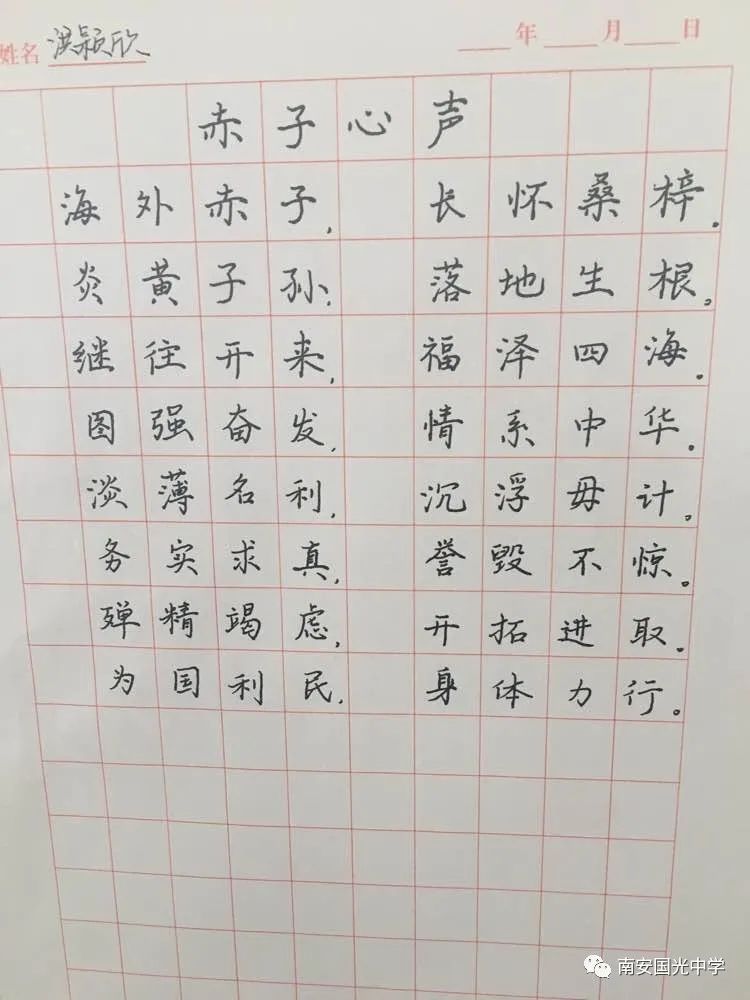 姓名 洪颖欣 年 月 日
赤子心声
海外赤子, 长怀桑梓。
炎黄子孙, 落地生根。
继往开来, 福泽四海。
图强奋发, 情系中华。
淡薄名利, 沉浮毋计。
务实求真, 誉毁不惊。
殚精竭虑, 开拓进取。
为国利民, 身体力行。
南安国光中学